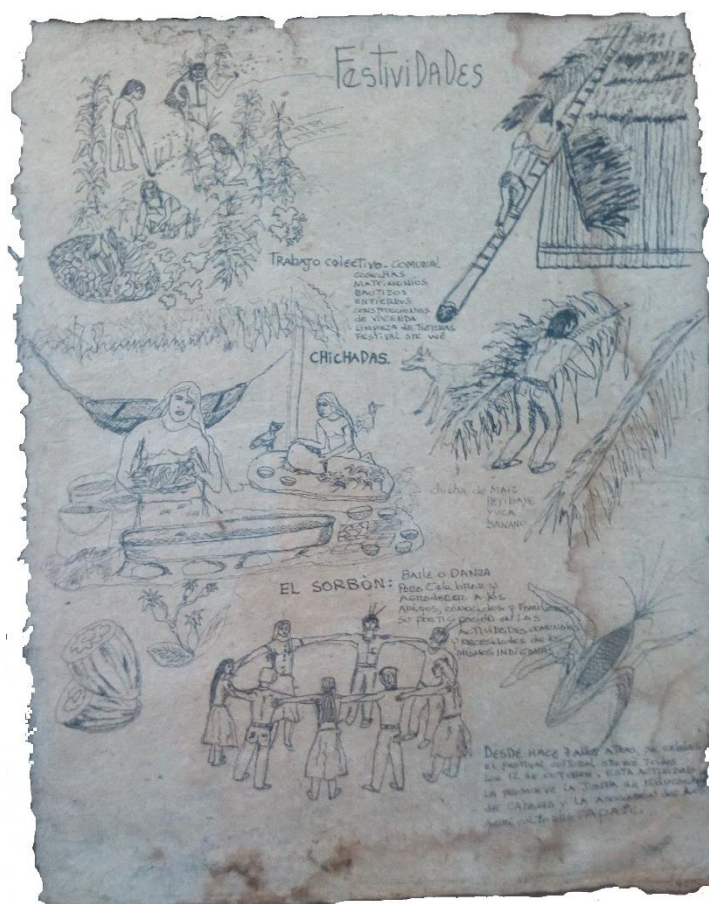 FESTIVIDADES
TRABAJO COLECTIVO - COMUNAL
COSECHAS
MATRIMONIOS
BAUTIZOS
ENTIERROS
CONSTRUCCIONES
DE VIVIENDA
LIMPIEZA DE TIERRAS
FESTIVAL STE WÉ
CHICHADAS.
chicha de MAIZ
PEJIBAJE
YUCA
BANANO
EL SORBÓN: BAILE O DANZA
PARA CELEBRAR Y
AGRADECER A LOS
AMIGOS, CONOCIDOS Y
SU PARTICIPACIÓN EN LAS
ACTIVIDADES
Y NECESIDADES DE LOS
MISMOS INDIGENAS
DESDE HACE 7 AÑOS ATRAS, SE
EL FESTIVAL CULTURAL STE WE TODOS
LOS 12 DE OCTUBRE, ESTA ACTIVIDAD
LA PROMUEVE LA JUNTA DE EDUCACION
DE CABAGRA Y LA ASOCIACION DE